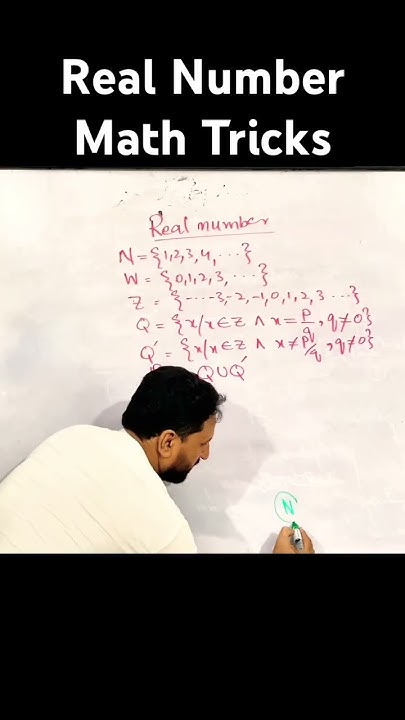 Real Number
Math Tricks
Real number
N = {1,2,3,4, ...}
W = {0,1,2,3, ...}
Z = {... -3,-2,-1,0,1,2,3 ...}
Q = {x/x∈Z ∧ x = p/q, q≠0}
Q' = {x/x∈Z ∧ x ≠ p/q, q≠0}
Q∪Q'
N